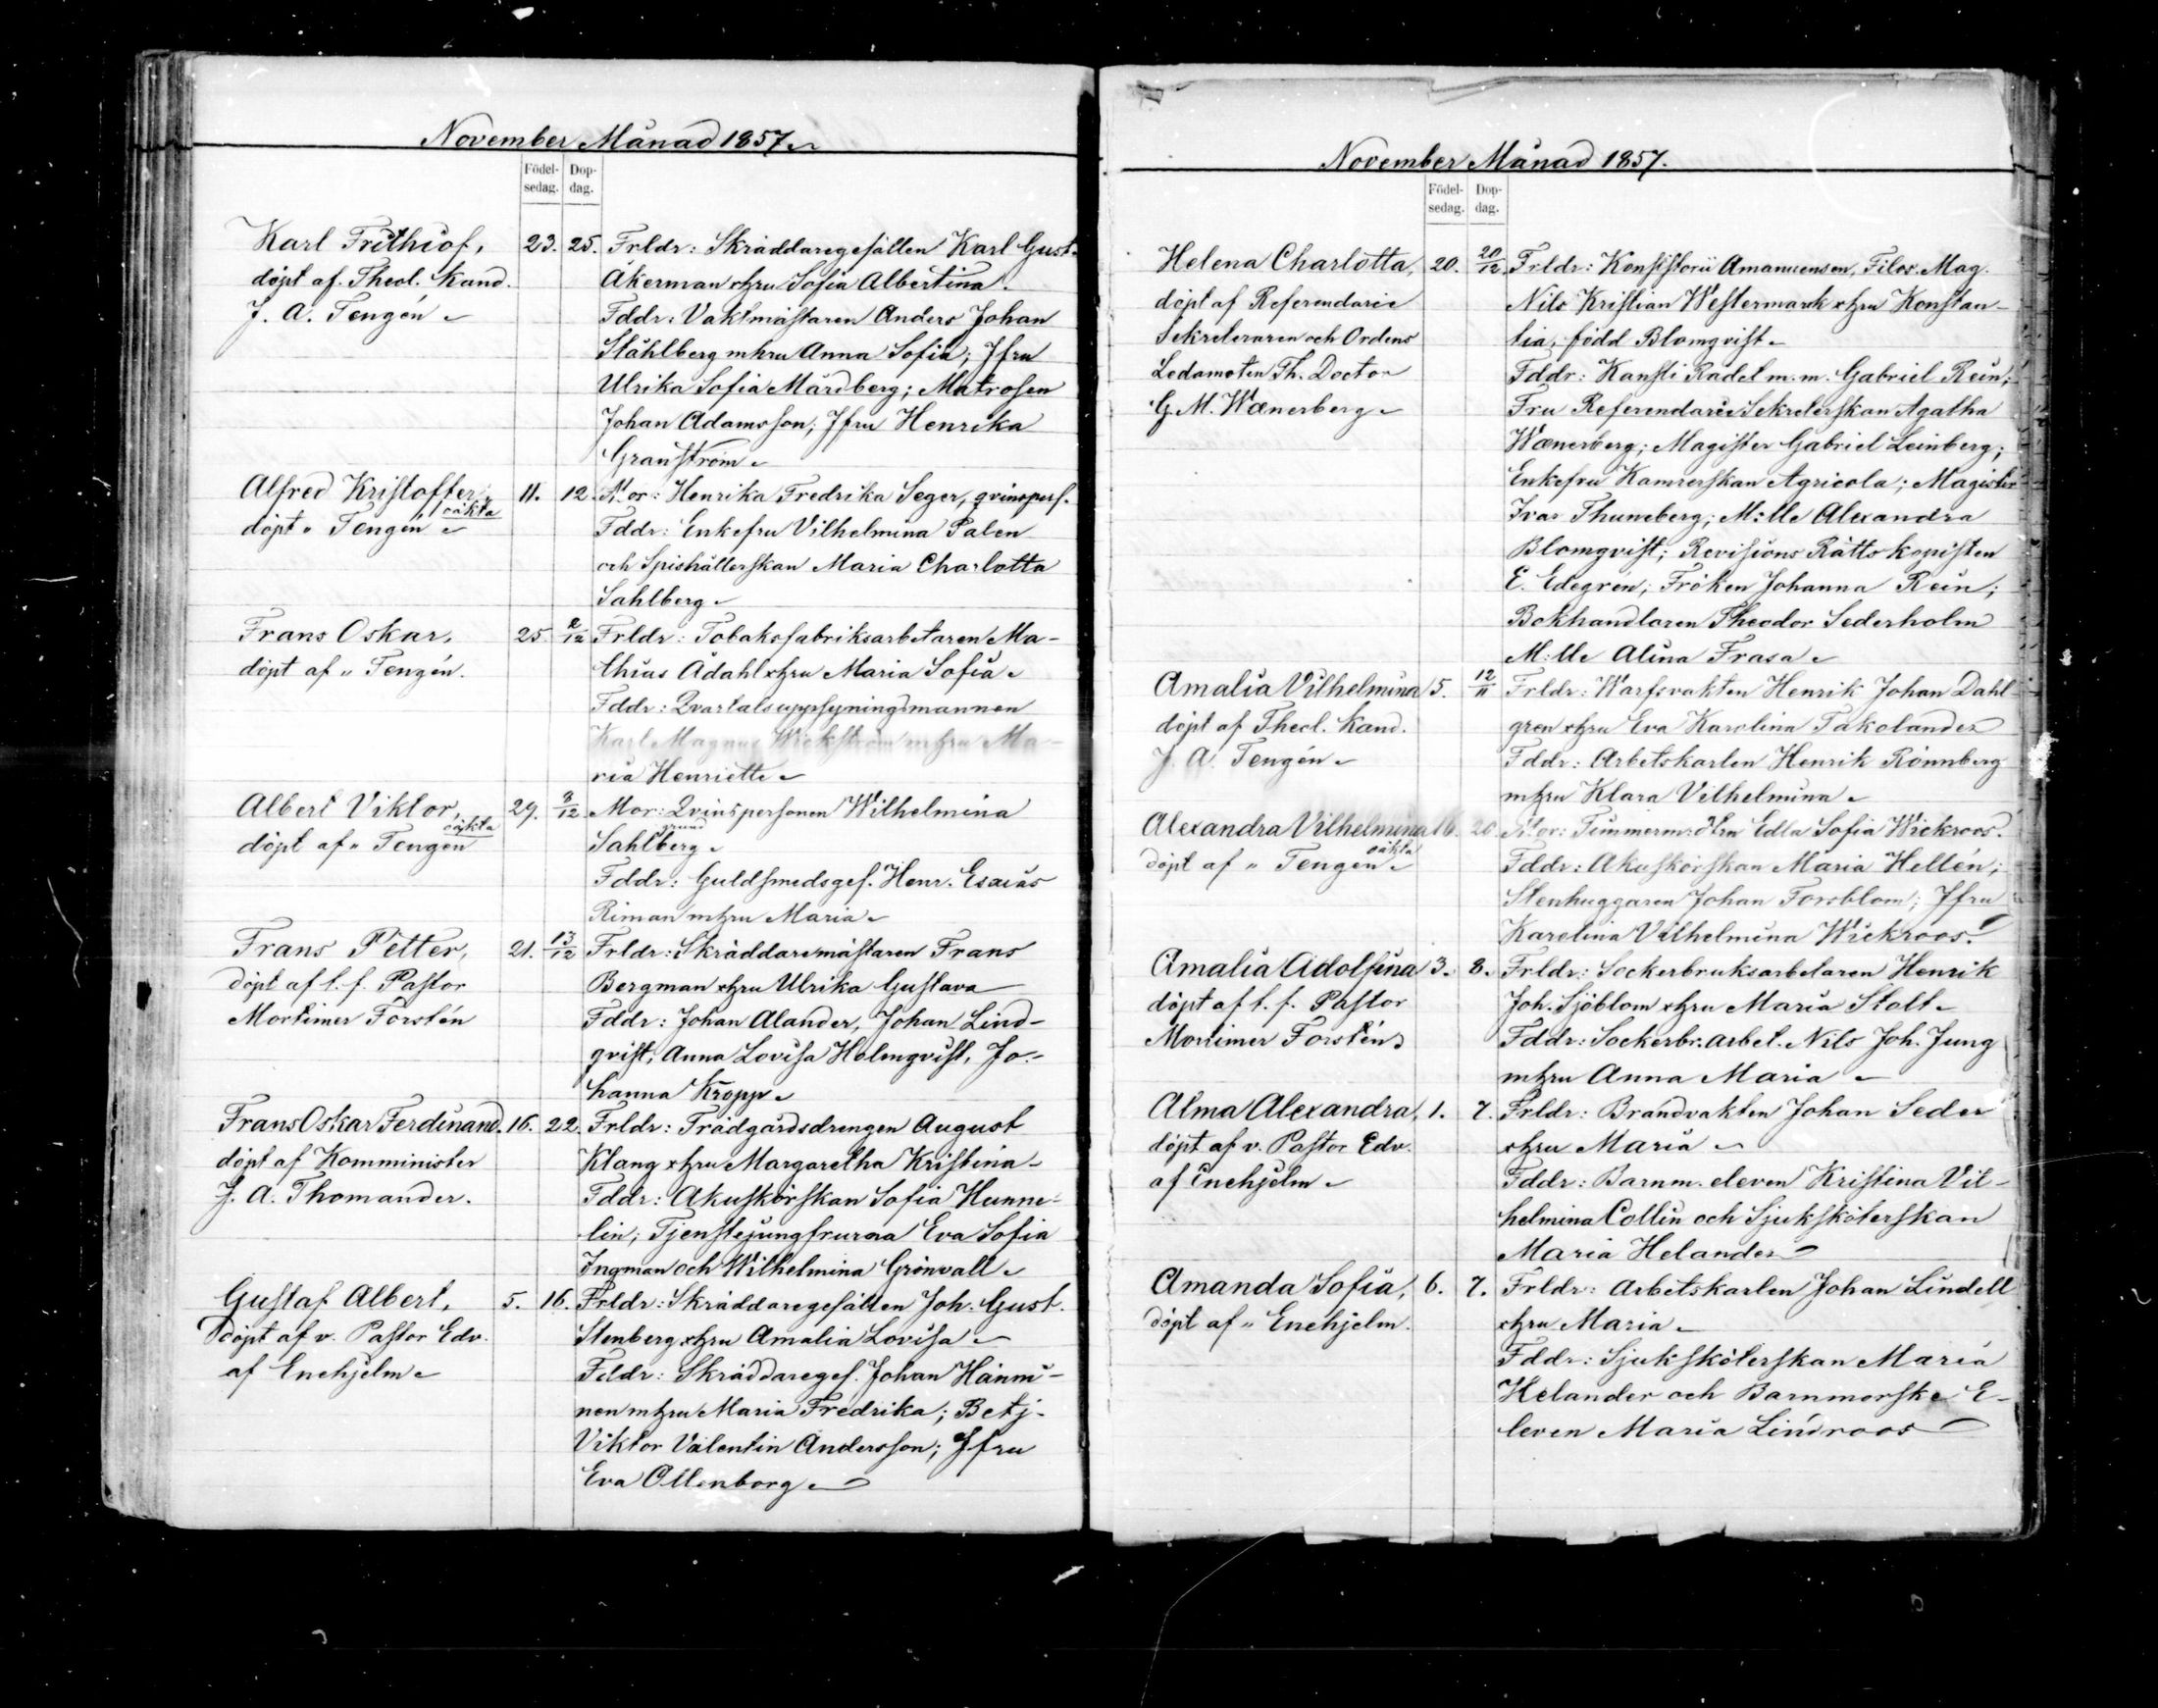 November Månad 1857.
Födel-
sedag.
Dop-
dag.
Karl Frithiof, 23. 25. Frldr: Skräddaregesällen Karl Gust.
döpt af Theol. Kand. Åkerman o. hru Sofia Albertina.
J. A. Tengén Fddr: Vaktmästaren Anders Johan
Ståhlberg m. hru Anna Sofia; Jfru
Ulrika Sofia Mårdberg; Matrosen
Johan Adamsson; Jfru Henrika
Granström
Alfred Kristoffer, 11. 12. Mor: Henrika Fredrika Seger, qvinspers.
oäkta
döpt " Tengén Fddr: Enkefru Vilhelmina Palen
och Spishållerskan Maria Charlotta
Sahlberg
Frans Oskar, 25. 2/12 Frldr: Tobaksfabriksarbetaren Ma-
döpt af " Tengén. thias Ådahl o. hru Maria Sofia
Fddr: Qvartalsuppsyningsmannen
Karl Magnus Wickström m. hru Ma-
ria Henriette
Albert Viktor, 29. 3/12 Mor: Qvinspersonen Wilhelmina
oäkta grund
döpt af " Tengén Sahlberg
Fddr: Guldsmedsges. Henr. Esaias
Riman m. hru Maria
Frans Petter, 21. 13/12 Frldr: Skräddaremästaren Frans
döpt af t. f. Pastor Bergman o. hru Ulrika Gustava
Mortimer Forstén Fddr: Johan Alander, Johan Lind-
qvist, Anna Lovisa Holmqvist, Jo-
hanna Kropp
Frans Oskar Ferdinand, 16. 22. Frldr: Trädgårdsdrengen August
döpt af Komminister Klang o. hru Margaretha Kristina
J. A. Thomander. Fddr: Akuskörskan Sofia Hunne-
lin; Tjenstejungfrurna Eva Sofia
Ingman och Wilhelmina Grönvall
Gustaf Albert, 5. 16. Frldr: Skräddaregesällen Joh. Gust.
döpt af v. Pastor Edv. Stenberg o. hru Amalia Lovisa
af Enehjelm Fddr: Skräddareges. Johan Hänni-
nen m. hru Maria Fredrika; Betj.
Viktor Valentin Andersson; Jfru
Eva Ollenborg
November Månad 1857.
Födel-
sedag.
Dop-
dag.
Helena Charlotta, 20. 20/12 Frldr: Konsistorii Amanuensen, Filos. Mag.
döpt af Referendarie Nils Kristian Westermarck o. hru Konstan-
Sekreteraren och Ordens tia, född Blomqvist
Ledamoten Th. Doctor Fddr: Kansli Rådet m. m. Gabriel Rein;
G. M. Wænerberg Fru Referendarie Sekreterskan Agatha
Wænerberg; Magister Gabriel Leinberg;
Enkefru Kamrerskan Agricola; Magister
Ivar Thuneberg; M:lle Alexandra
Blomqvist; Revisions Rätts kopisten
E. Edegren; Fröken Johanna Rein;
Bokhandlaren Theodor Sederholm
M:lle Alina Frasa
Amalia Vilhelmina 5. 12/11 Frldr: Warfsvakten Henrik Johan Dahl-
döpt af Theol. Kand. gren o. hru Eva Karolina Takolander
J. A. Tengén Fddr: Arbetskarlen Henrik Rönnberg
m. hru Klara Vilhelmina
Alexandra Vilhelmina 16. 20. Mor: Timmerm: Edla Sofia Wickroos.
oäkta
döpt af " Tengén Fddr: Akuskörskan Maria Hellén;
Stenhuggaren Johan Forsblom; Jfru
Karolina Vilhelmina Wickroos.
Amalia Adolfina 3. 8. Frldr: Sockerbruksarbetaren Henrik
döpt af t. f. Pastor Joh. Sjöblom o. hru Maria Stolt
Mortimer Forstén Fddr: Sockerbr. arbet. Nils Joh. Jung
m. hru Anna Maria
Alma Alexandra, 1. 7. Frldr: Brandvakten Johan Seder
döpt af v. Pastor Edv. o. hru Maria
af Enehjelm Fddr: Barnm. eleven Kristina Vil-
helmina Collin och Sjuksköterskan
Maria Helander
Amanda Sofia, 6. 7. Frldr: Arbetskarlen Johan Lindell
döpt af " Enehjelm. o. hru Maria
Fddr: Sjuksköterskan Maria
Helander och Barnmorske E-
leven Maria Lindroos